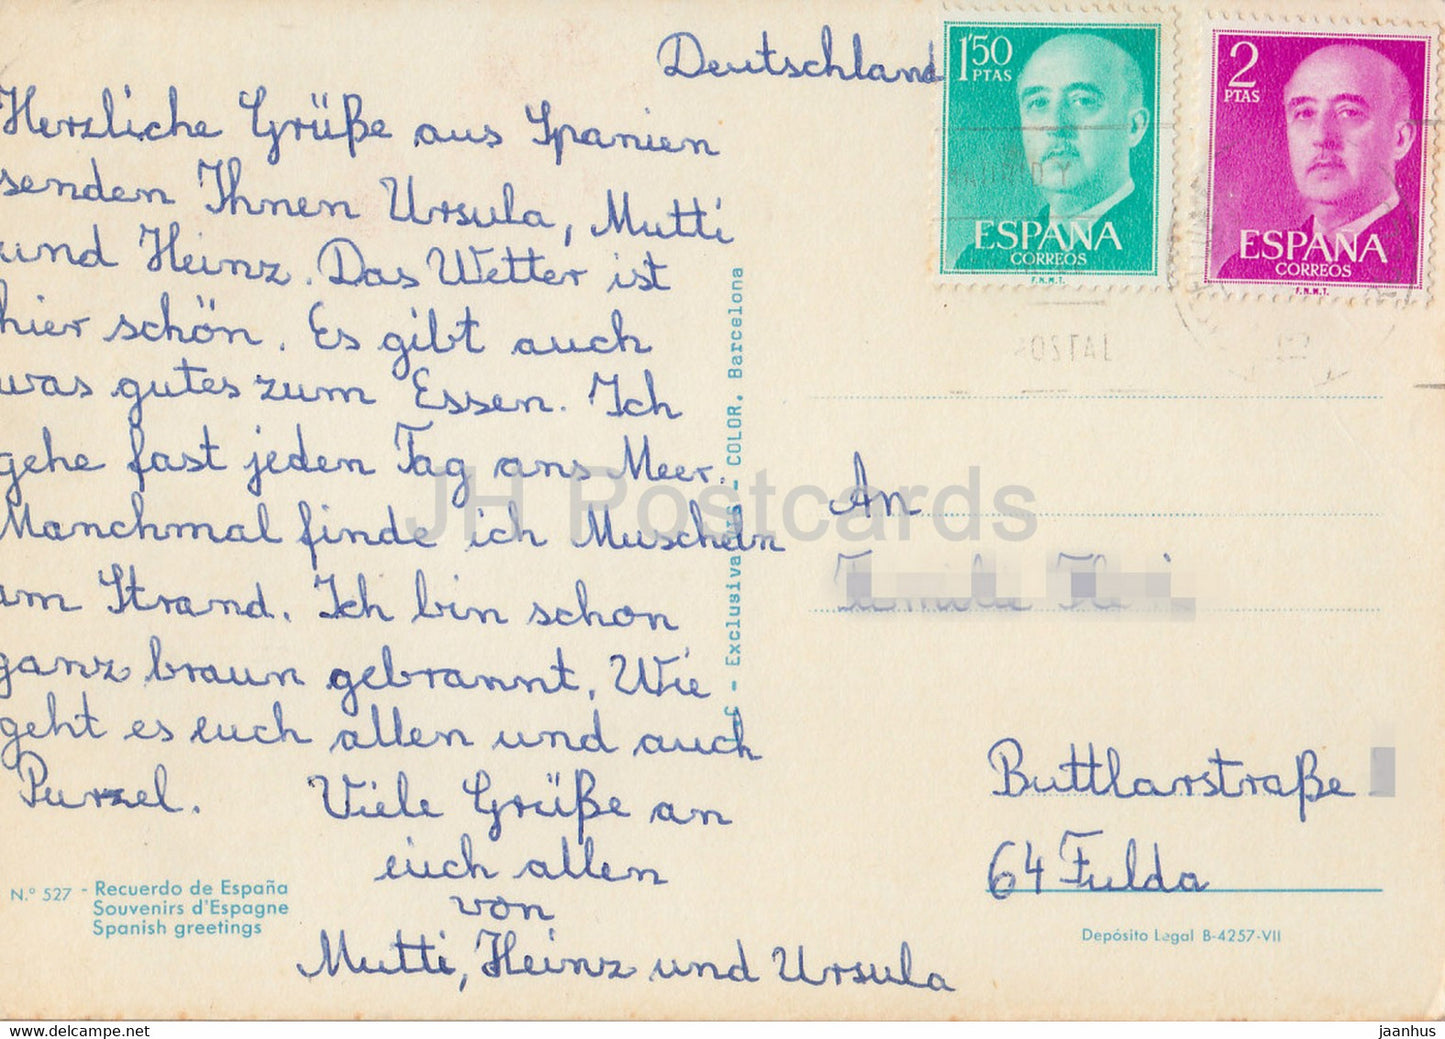 Deutschland
Herzliche Grüße aus Spanien
senden Ihnen Ursula, Mutti
und Heinz. Das Wetter ist
hier schön. Es gibt auch
was gutes zum Essen. Ich
gehe fast jeden Tag ans Meer.
Manchmal finde ich Muscheln
am Strand. Ich bin schon
ganz braun gebrannt. Wie
geht es euch allen und auch
Purzel. Viele Grüße an
euch allen
von
Mutti, Heinz und Ursula
N.° 527 - Recuerdo de España
Souvenirs d'Espagne
Spanish greetings
Exclusivas - COLOR, Barcelona
1'50
PTAS
ESPAÑA
CORREOS
F.N.M.T.
2
PTAS
ESPAÑA
CORREOS
F.N.M.T.
An
Buttlarstraße
64 Fulda
Depósito Legal B-4257-VII
JH Postcards
www.delcampe.net
jaanhus